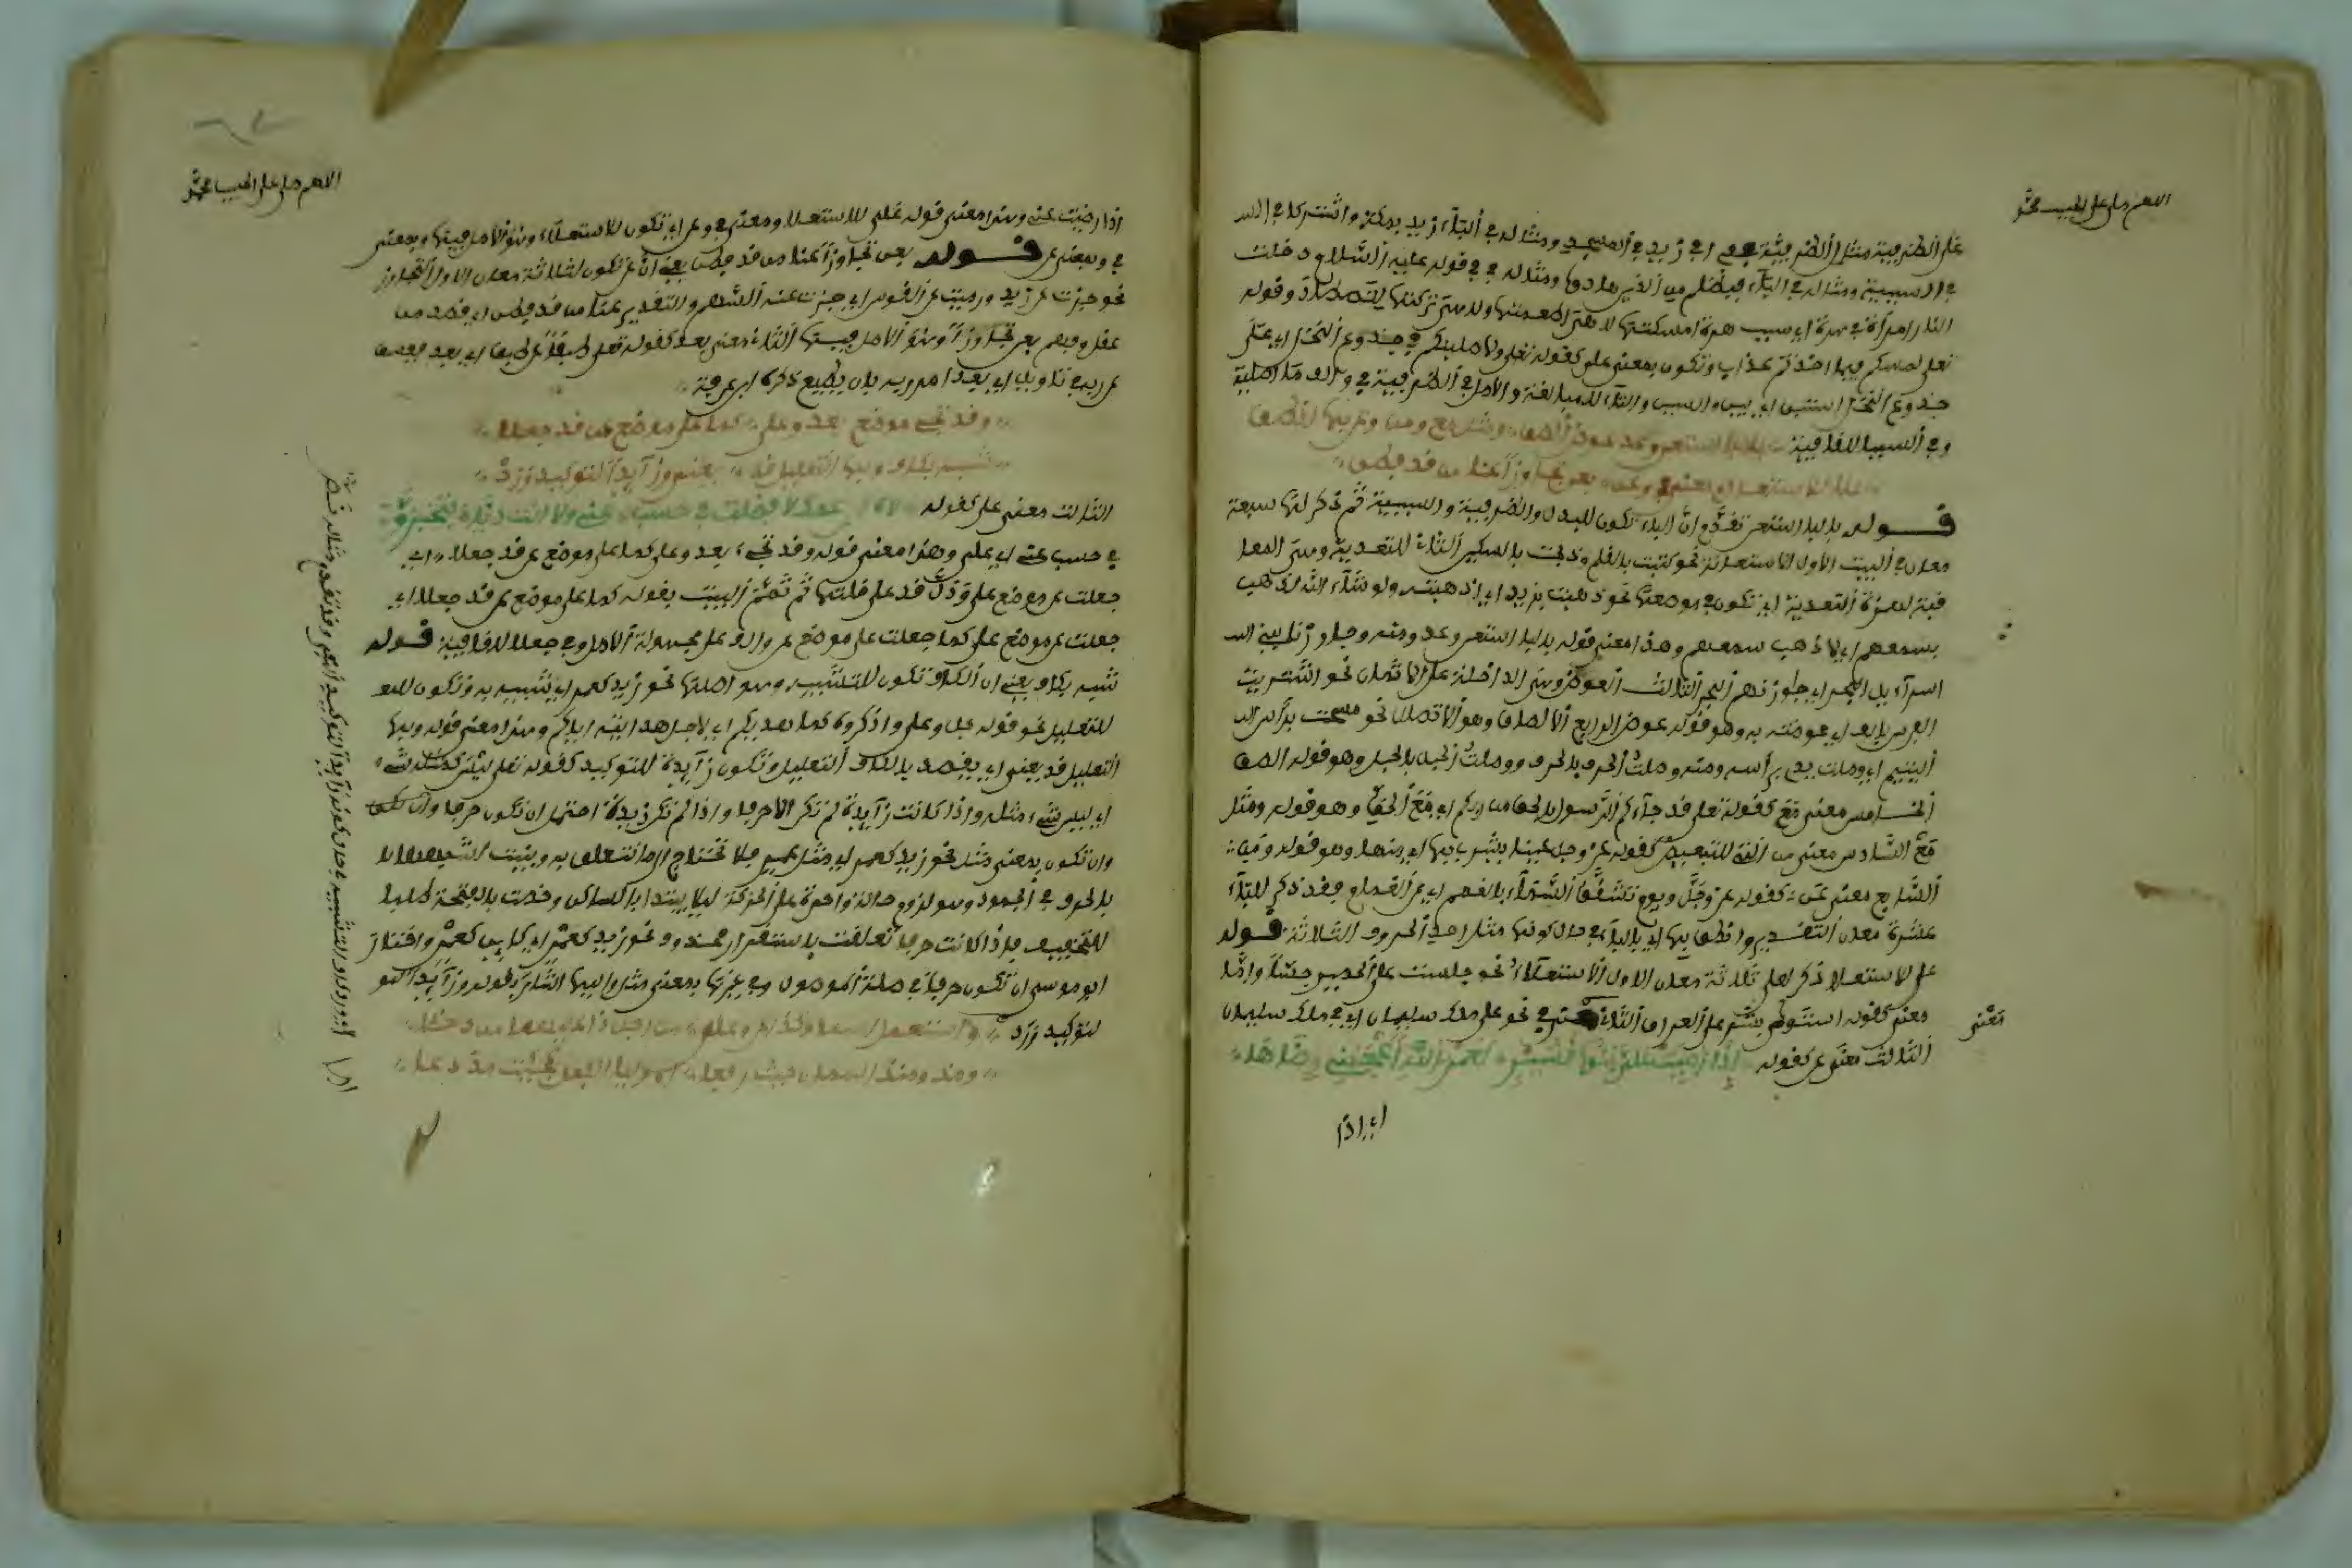 اللهم صل على الحبيب محمد
على الظرفية مثال الظرفية في اي زيد في المسجد ومثاله في الباء زيد بمكة واشتركا في الس
في السببية ومثاله في الباء فبظلم من الذين هادوا ومثاله في في قوله عليه السلام دخلت
النار امرأة في هرة اي بسبب هرة امسكتها لا هي اطعمتها ولا هي تركتها وقوله
تعلى لمسكم فيما اخذتم عذاب وتكون بمعنى على كقوله تعلى ولاصلبنكم في جذوع النخل اي على
جذوع النخل والسين والتاء للمبالغة والاصل في الظرفية في
وفي السببا للقافية بالبا استعن وعد عوض الصق ومثل مع ومن وعن بها انطق
على للاستعلا ومعنى في وعن بعن تجاوزا عنا من قد فطن
قوله بالبا استعن تقدم ان الباء تكون للبدل والظرفية والسببية ثم ذكر لها سبعة
معان في البيت الاول الاستعانة نحو كتبت بالقلم وذبحت بالسكين الثاني للتعدية وهي المعا
قبة لهمزة التعدية اي تكون في موضعها نحو ذهبت بزيد اي اذهبته ولو شاء الله لذهب
بسمعهم اي لاذهب سمعهم وهذا معنى قوله بالبا استعن وعد ومنه وجاوزنا ببني اسـ
اسراءيل البحر اي جاوزناهم البحر الثالث العوض وهي الداخلة على الاثمان نحو اشتريت
الفرس بالف اي عوضته به وهو قوله عوض الرابع الالصاق وهو الاتصال نحو مسحت برأس الـ
اليتيم اي وصلت يدي برأسه ومنه وصلت الحرف بالحرف ووصلت الحبل بالحبل وهو قوله الصق
الخامس معنى مع كقوله تعلى قد جاءكم الرسول بالحق من ربكم اي مع الحق وهو قوله ومثل
مع السادس معنى من التي للتبعيض كقوله عز وجل عينا يشرب بها اي منها وهو قوله ومن
السابع معنى عن كقوله عز وجل ويوم تشقق السماء بالغمم اي عن الغمام فقد ذكر للباء
عشرة معان التقدير وانطق بها اي بالباء في حال كونها مثل احد الحروف الثلاثة قوله
على للاستعلا ذكر لعلى ثلاثة معان الاول الاستعلاء نحو جلست على الحصير
معنى كقوله استوى بشر على العراق الثاني معنى في نحو على ملك سليمان اي في ملك سليمان
معنى
الثالث معنى عن كقوله اذا رضيت علي بنوا قشير لعمر الله اعجبني رضاها
اي اذا
اللهم صل على الحبيب محمد
اذا رضيت عني وهذا معنى قوله على للاستعلا ومعنى في وعن اي تكون للاستعلاء وهو الاصل فيها وبمعنى
في وبمعنى عن قوله بعن تجاوزا عنا من قد فطن يعني ان عن تكون لثلاثة معان الاول التجاوز
نحو جزت عن زيد ورميت عن القوس اي جزت عنه السهم والتقدير عنا من قد فطن اي قصد من
عقل وفهم بعن تجاوزا وهو الاصل فيها الثاني معنى بعد كقوله تعلى طبقا عن طبق اي بعد
وقد تجي موضع بعد وعلى كما على موضع عن قد جعلا
شبه بكاف وبها التعليل قد يعنى وزايدا لتوكيد ورد
الثالث معنى على كقوله لاه ابن عمك لا فضلت في حسب عني ولا انت دياني فتخزوني
في حسب عني اي علي وهذا معنى قوله وقد تجي بعد وعلى كما على موضع عن قد جعلا اي
جعلت عن موضع على ودل قد على قلتها ثم تمم البيت بقوله كما على موضع عن قد جعلا اي
جعلت عن موضع على كما جعلت على موضع عن والف على مجهولة الاصل وفي جعلا للقافية قوله
شبه بكاف يعني ان الكاف تكون للتشبيه وهو اصلها نحو زيد كعمر اي شبيه به وتكون للتعـ
للتعليل نحو قوله جل وعلى واذكروه كما هديكم اي لاجل هدايته اياكم وهذا معنى قوله وبها
التعليل قد يعنى اي يقصد بالكاف التعليل وتكون زايدة للتوكيد كقوله تعلى ليس كمثله شيء
اي ليس شيء مثله واذا كانت زايدة لم تكن الا حرفا واذا لم تكن زايدة احتمل ان تكون حرفا
وان تكون بمعنى مثل نحو زيد كعمر اي مثل عمر فلا تحتاج الى ما تتعلق به
بالحرف في الجمود ولزوم حالة واحدة على الحركة ليلا يبتدا بالساكن وخصت بالفتحة طلبا
للتخفيف فاذا كانت حرفا تعلقت باستقرار محذوف نحو زيد كعمر اي كاين كعمر واختار
ابو موسى ان تكون حرفا في صلة الموصول وفي غيرها بمعنى مثل واليها اشار بقوله وزايدا لتو
لتوكيد ورد واستعمل اسما وكذا عن وعلى من اجل ذا عليهما من دخلا
ومذ ومنذ اسمان حيث رفعا او اوليا الفعل كجئت مذ دعا